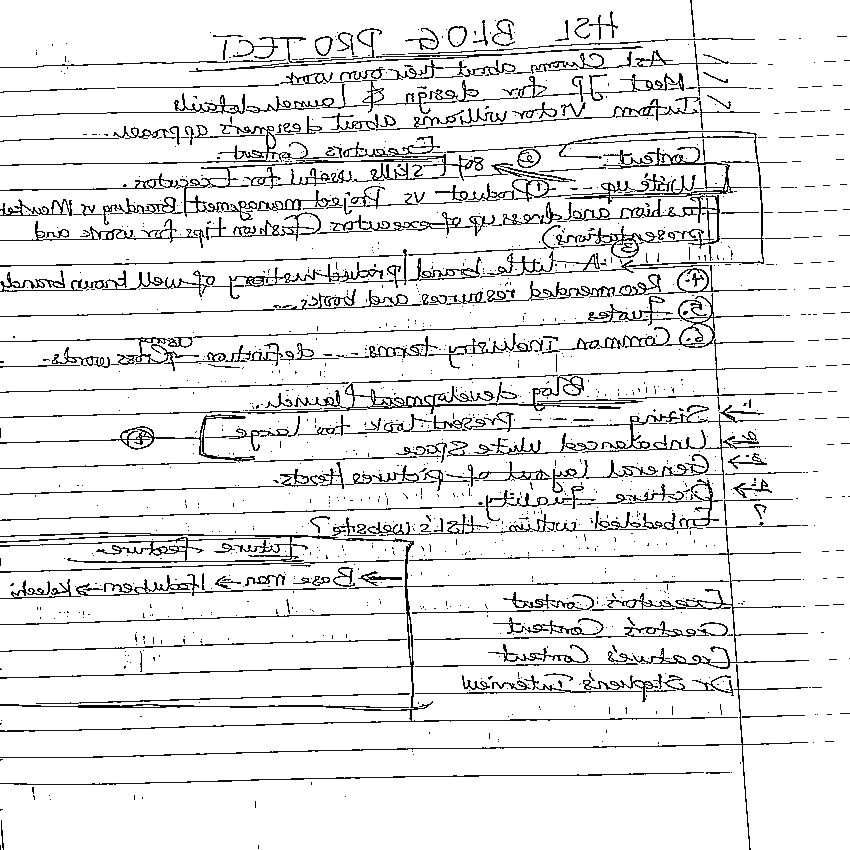 HSL BLOG PROJECT
Ask Chioma about their own work
Meet JP for design & launch details
Inform Victor williams about designer's approach...
Executors Content.
Content: ② 80+ skills useful for Executor.
Write up --- ① Product vs Project management/Branding vs Market
Fashion and dress up of executor (fashion tips for work and
presentations)
③ A little brand/product history of well known brands
④. Recommended resources and books ---
⑤.
⑥ Common Industry terms --- definition - Cross words.
Blog development/launch.
1. → Sizing --- Present look too large
2 → Unbalanced White Space
3 → General layout of pictures/texts.
4 → Picture quality.
? Embedded within HSL's website?
Future feature
→ Base man → → Kelechi
Executor's Content
Creator's Content
Creative's Content
Dr Stephen's Interview